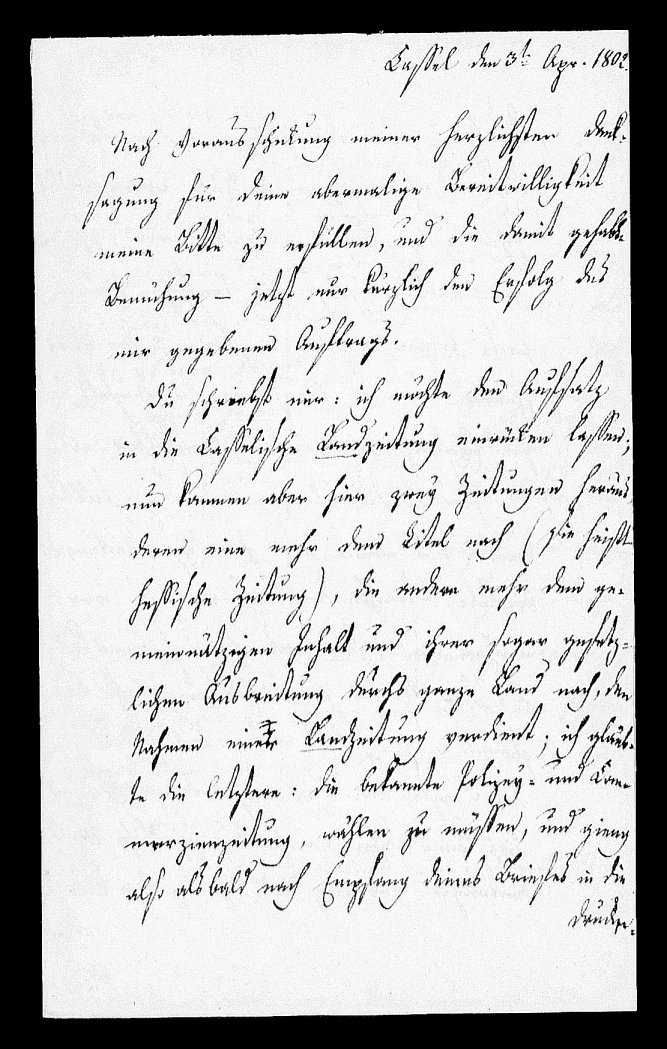 Cassel den 3t. Apr. 1802.
Nach Vorausschickung meiner herzlichsten Dank-
sagung für deine abermalige Bereitwilligkeit
meine Bitte zu erfüllen, und die damit gehabte
Bemühung – jetzt nur kürzlich den Erfolg des
mir gegebenen Auftrags.
Du schriebst mir: ich möchte den Aufsatz
in die Casselische Landzeitung einrücken lassen;
nun kommen aber hier zwey Zeitungen heraus,
deren eine mehr dem Titel nach (sie heißt
hessische Zeitung), die andere mehr dem ge-
meinnützigen Inhalt und ihrer sogar gesetz-
lichen Ausbreitung durchs ganze Land nach, den
Nahmen einer Landzeitung verdient; ich glaub-
te die letztere: die bekannte Polizey- und Com-
merzienzeitung, wählen zu müssen, und gieng
also alsbald nach Empfang deines Briefes in die
Drucke-